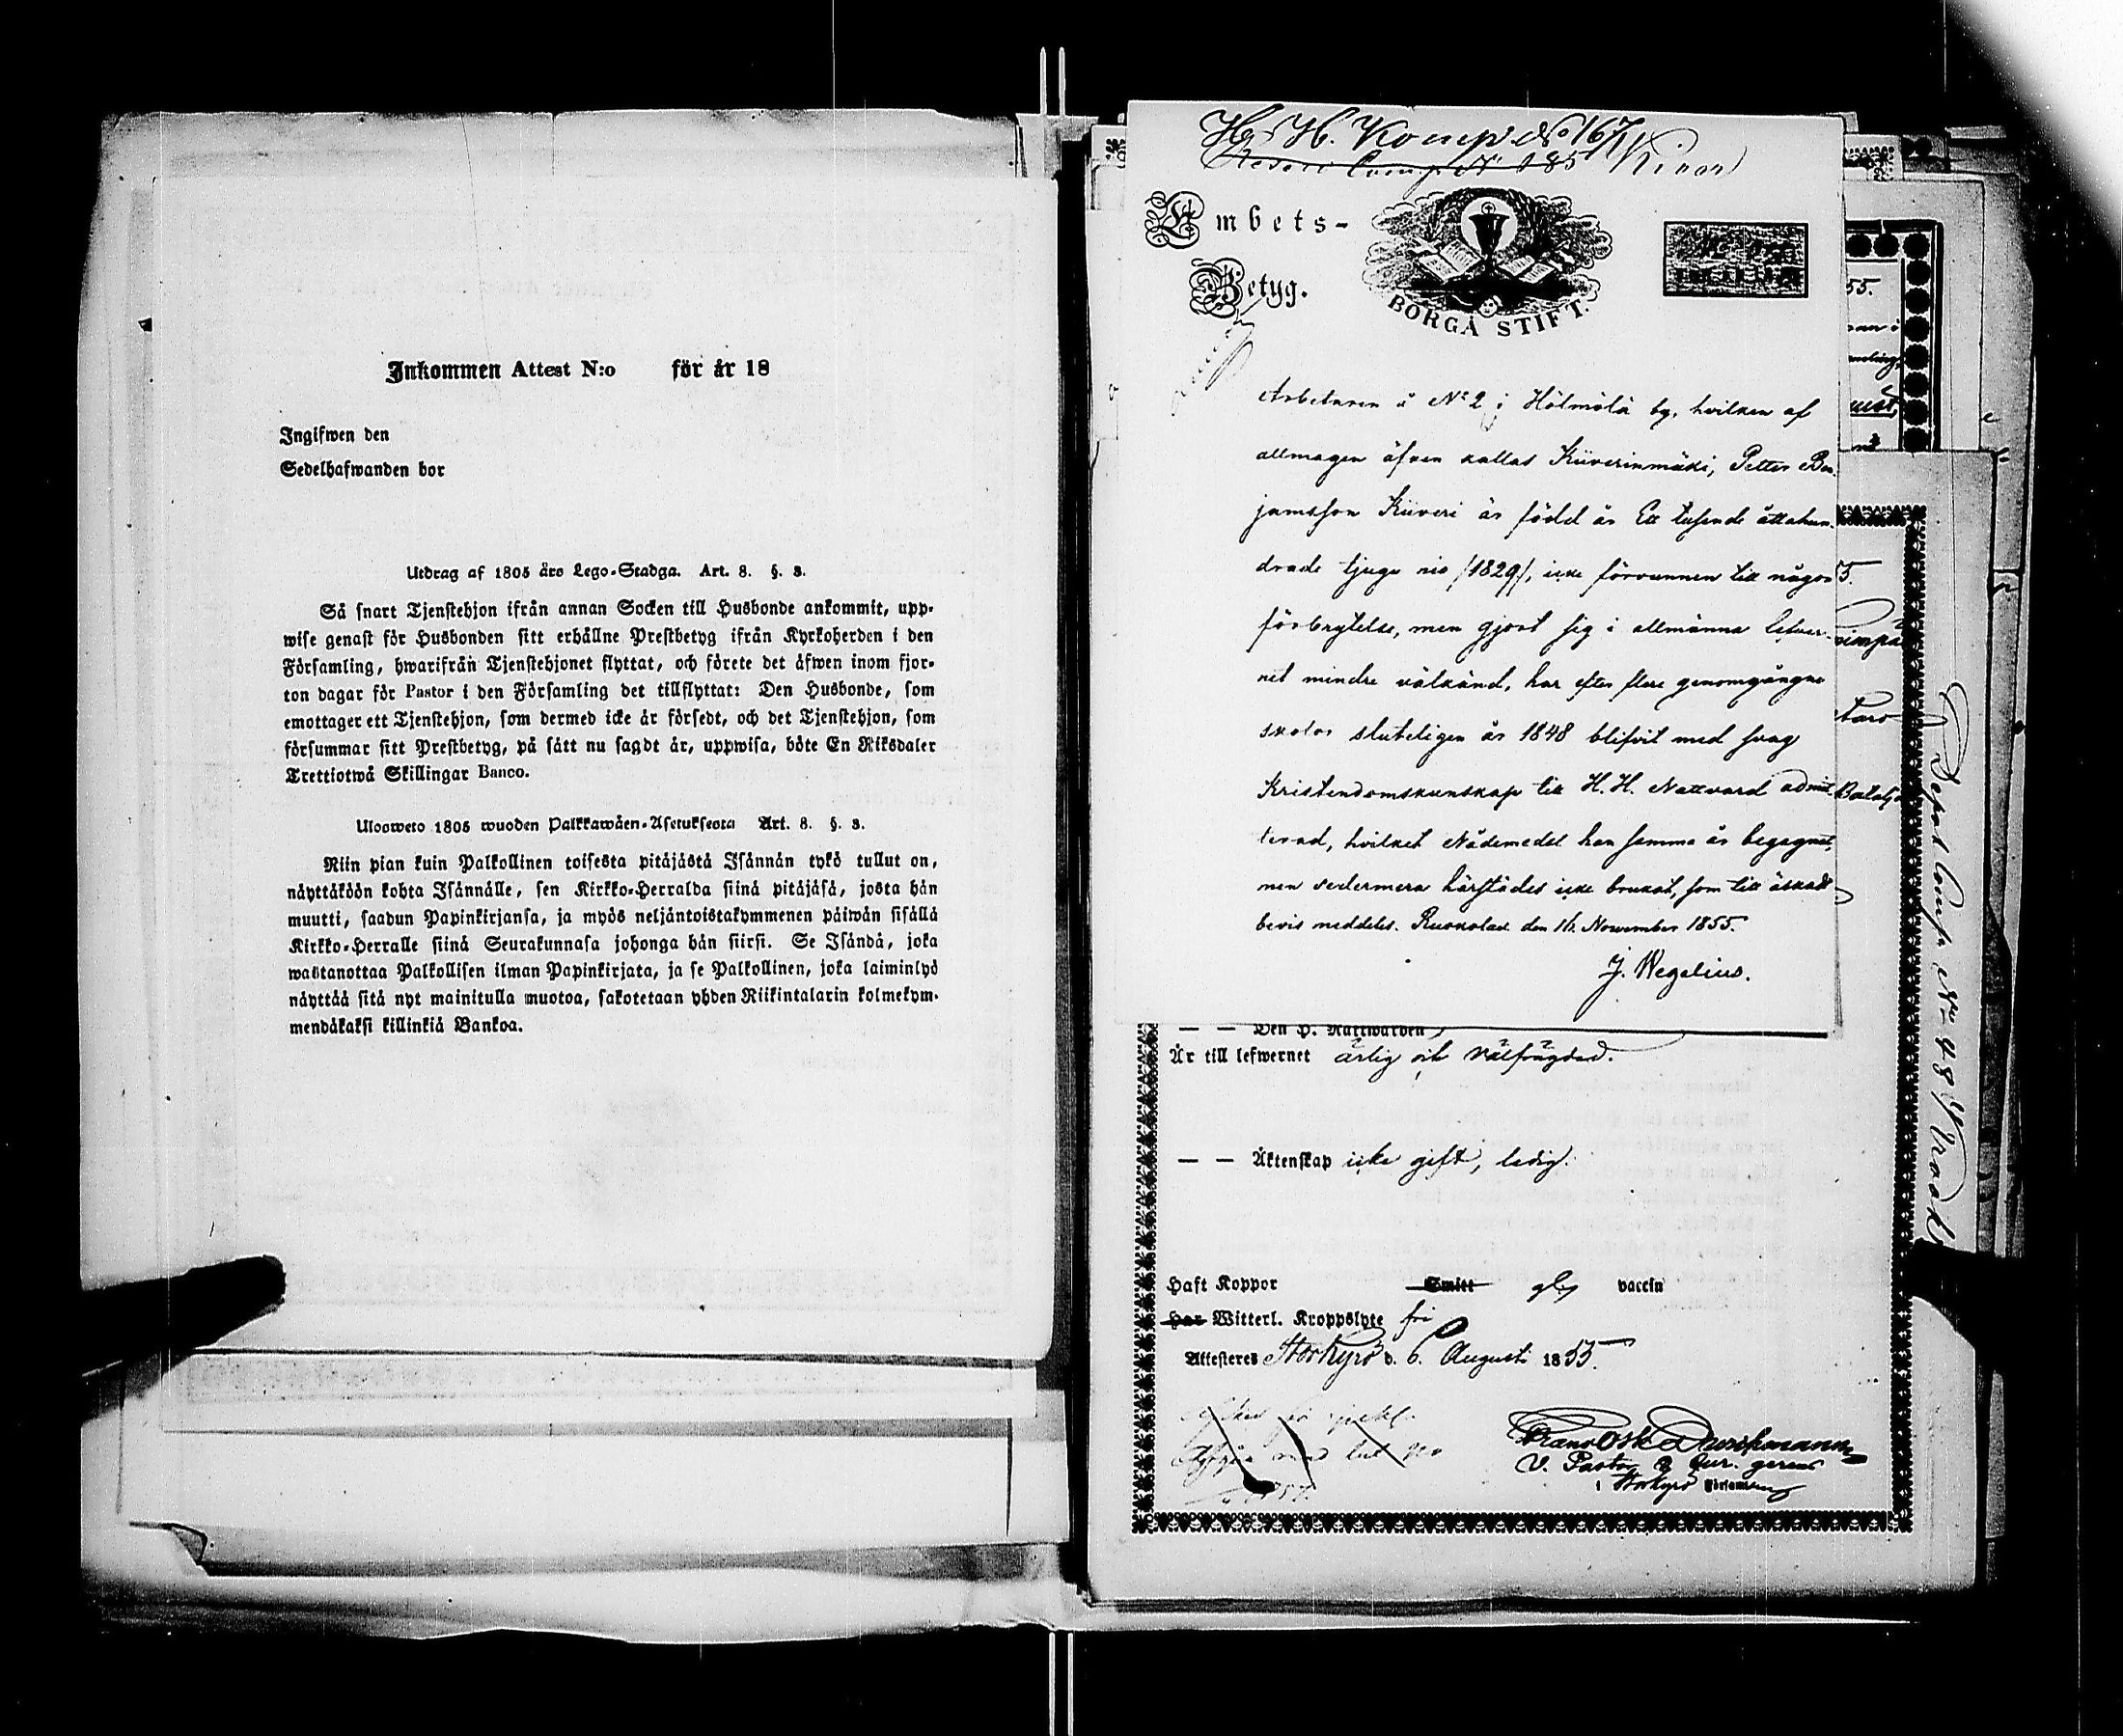 Inkommen Attest N:o för år 18
Ingifwen den
Sedelhafwanden bor
Utdrag af 1805 års Lego-Stadga. Art. 8. §. 3.
Så snart Tjenstehjon ifrån annan Socken till Husbonde ankommit, upp-
wise genast för Husbonden sitt erhållne Prestbetyg ifrån Kyrkoherden i den
Församling, hwarifrån Tjenstehjonet flyttat, och förete det äfwen inom fjor-
ton dagar för Pastor i den Församling det tillflyttat: Den Husbonde, som
emottager ett Tjenstehjon, som dermed icke är försedt, och det Tjenstehjon, som
försummar sitt Prestbetyg, på sätt nu sagdt är, uppwisa, böte En Riksdaler
Trettiotwå Skillingar Banco.
Ulosweto 1805 wuoden Palkkawäen-Asetuksesta Art. 8. §. 3.
Niin pian kuin Palkollinen toisesta pitäjästä Isännän tykö tullut on,
näyttäköön kohta Isännälle, sen Kirkko-Herralda siinä pitäjäsä, josta hän
muutti, saadun Papinkirjansa, ja myös neljäntoistakymmenen päiwän sisällä
Kirkko-Herralle siinä Seurakunnasa johonga hän siirsi. Se Isändä, joka
wastanottaa Palkollisen ilman Papinkirjata, ja se Palkollinen, joka laiminlyö
näyttää sitä nyt mainitulla muotoa, sakotetaan yhden Riikintalarin kolmekym-
mendäkaksi killinkiä Bankoa.
H. Komp No 167
Comp N 185
Embets-
Betyg.
BORGÅ STIFT.
Arbetaren å No 2 i Hölmölä by, hvilken af
allmogen äfven kallas Kiiverinmäki, Petter Ben-
jamsson Kiiveri är född år Ett tusende åttahun-
drade tjugu nio /1829/, icke förvunnen till någon
förbrytelse, men gjort sig i allmänna lefver-
net mindre välkänd, har efter flere genomgångne
skolor sluteligen år 1848 blifvit med svag
Kristendomskunskap till H. H. Nattvard admit-
terad, hvilket Nådemedel han samma år begagnat,
men sedermera härstädes icke brukat, som till äskadt
bevis meddelas. Ruokolax den 16 November 1855.
J. Wegelius.
55.
Depot Comp. No 48
— — Den H. Nattwarden
Är till lefwernet ärlig och välfrägdad.
— — Äktenskap icke gift, ledig.
Haft Koppor Smitt vaccin
Har Witterl. Kroppslyte fri
Attesteres Storkyro d. 6. Augusti 1855.
Frans Osk.
V. Pastor & Cur. gerens
i Storkyro Församling